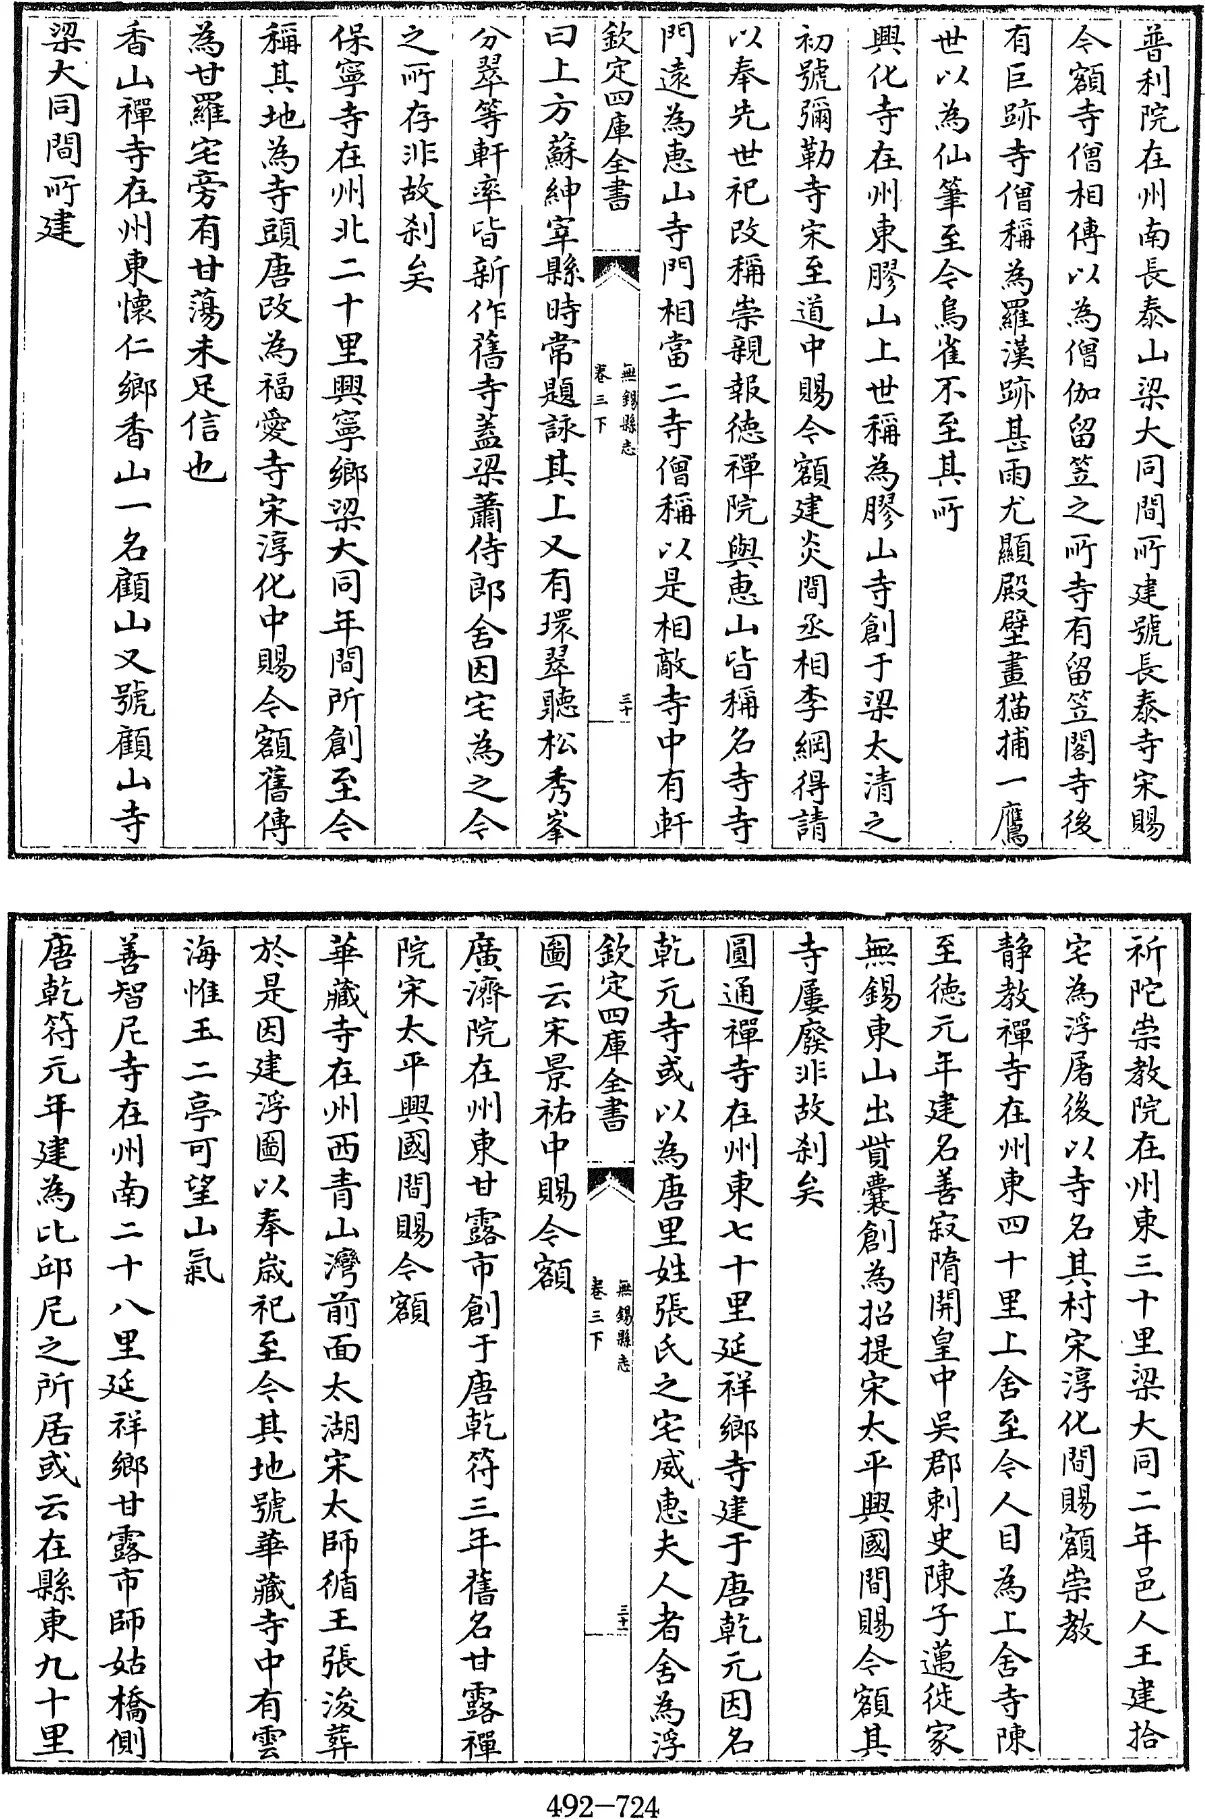 普利院在州南長泰山梁大同間所建號長泰寺宋賜
今額寺僧相傳以為僧伽留笠之所寺有留笠閣寺後
有巨跡寺僧稱為羅漢跡甚雨尤顯殿壁畫猫捕一鷹
世以為仙筆至今烏雀不至其所
興化寺在州東膠山上世稱為膠山寺創于梁太清之
初號彌勒寺宋至道中賜今額建炎間丞相李綱得請
以奉先世祀改稱崇親報德禪院與惠山皆稱名寺寺
門遠為惠山寺門相當二寺僧稱以是相敵寺中有軒
欽定四庫全書
無錫縣志
卷三下
三十
曰上方蘇紳宰縣時常題詠其上又有環翠聽松秀峯
分翠等軒率皆新作舊寺蓋梁蕭侍郎舍因宅為之今
之所存非故刹矣
保寧寺在州北二十里興寧鄉梁大同年間所創至今
稱其地為寺頭唐改為福愛寺宋淳化中賜今額舊傳
為甘羅宅旁有甘蕩未足信也
香山禪寺在州東懷仁鄉香山一名顧山又號顧山寺
梁大同間所建
祈陀崇教院在州東三十里梁大同二年邑人王建拾
宅為浮屠後以寺名其村宋淳化間賜額崇教
静教禪寺在州東四十里上舍至今人目為上舍寺陳
至德元年建名善寂隋開皇中吳郡刺史陳子邁徙家
無錫東山出貲囊創為招提宋太平興國間賜今額其
寺屢廢非故刹矣
圓通禪寺在州東七十里延祥鄉寺建于唐乾元因名
乾元寺或以為唐里姓張氏之宅威惠夫人者舍為浮
欽定四庫全書
無錫縣志
卷三下
三十一
圖云宋景祐中賜今額
廣濟院在州東甘露市創于唐乾符三年舊名甘露禪
院宋太平興國間賜今額
華藏寺在州西青山灣前面太湖宋太師循王張浚葬
於是因建浮圖以奉歲祀至今其地號華藏寺中有雲
海惟玉二亭可望山氣
善智尼寺在州南二十八里延祥鄉甘露市師姑橋側
唐乾符元年建為比邱尼之所居或云在縣東九十里
492-724